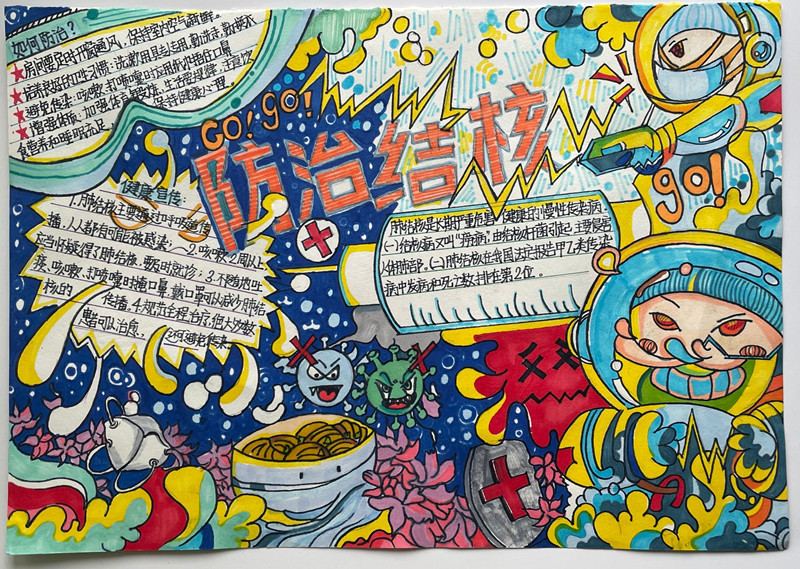 如何防治？
★房间要及时开窗通风，保持室内空气新鲜。
★避免传染：咳嗽、打喷嚏时应用
★增强体质：加强体育锻炼，生活
食营养和睡眠充足，保持健康心理
GO! GO!
防治结核
go!
健康宣传：
1.肺结核主要通过呼吸道传
播，人人都有可能被感染；2.咳嗽2周以上
应当怀疑得了肺结核，要及时就诊；3.不随地吐
痰，咳嗽、打喷嚏时掩口鼻，戴口罩可以减少肺结
核的传播。4.规范全程治疗，绝大多数
患者可以治愈，
肺结核是长期严重危害健康的慢性传染病
(一)结核病又叫“痨病”由结核杆菌引起，主要侵害
人体肺部。(二)肺结核在我国法定报告甲乙类传染
病中发病和死亡数排在第2位。